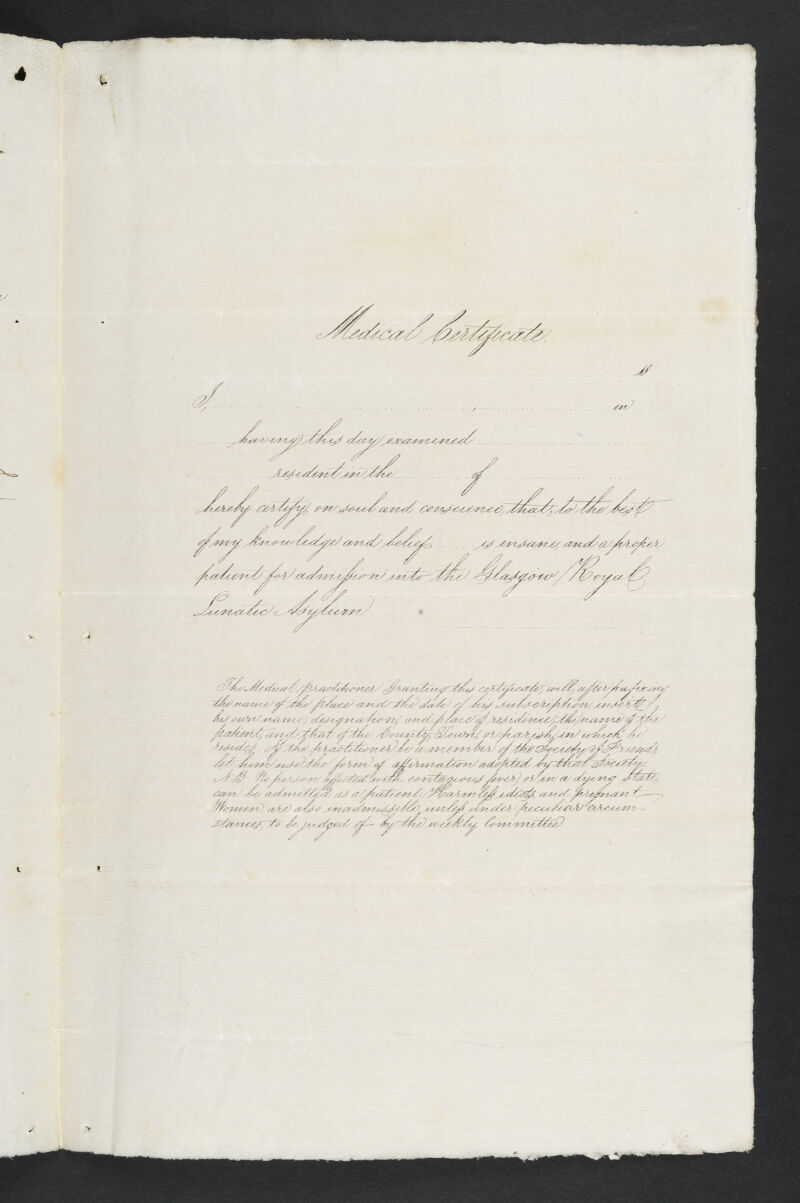 Medical Certificate.
18
I, , in
having this day examined
resident in the of
hereby certify, on soul and conscience, that, to the best
of my knowledge and belief is insane, and a proper
patient for admission into the Glasgow Royal
Lunatic Asylum *
The Medical Practitioner Granting this certificate, will, after prefixing
the name of the place and the date of his subscription, insert
his own name, designation, and place of residence, the name of the
patient, and that of the County, Town, or parish, in which he
resides. If the practitioner be a member of the Society of Friends
let him use the form of affirmation adopted by that Society.
N.B. No person affected with contagious fever, or in a dying state,
can be admitted as a patient, Harmless idiots and pregnant
Women are also inadmissible, unless under peculiar circum-
stances, to be judged of by the weekly Committee